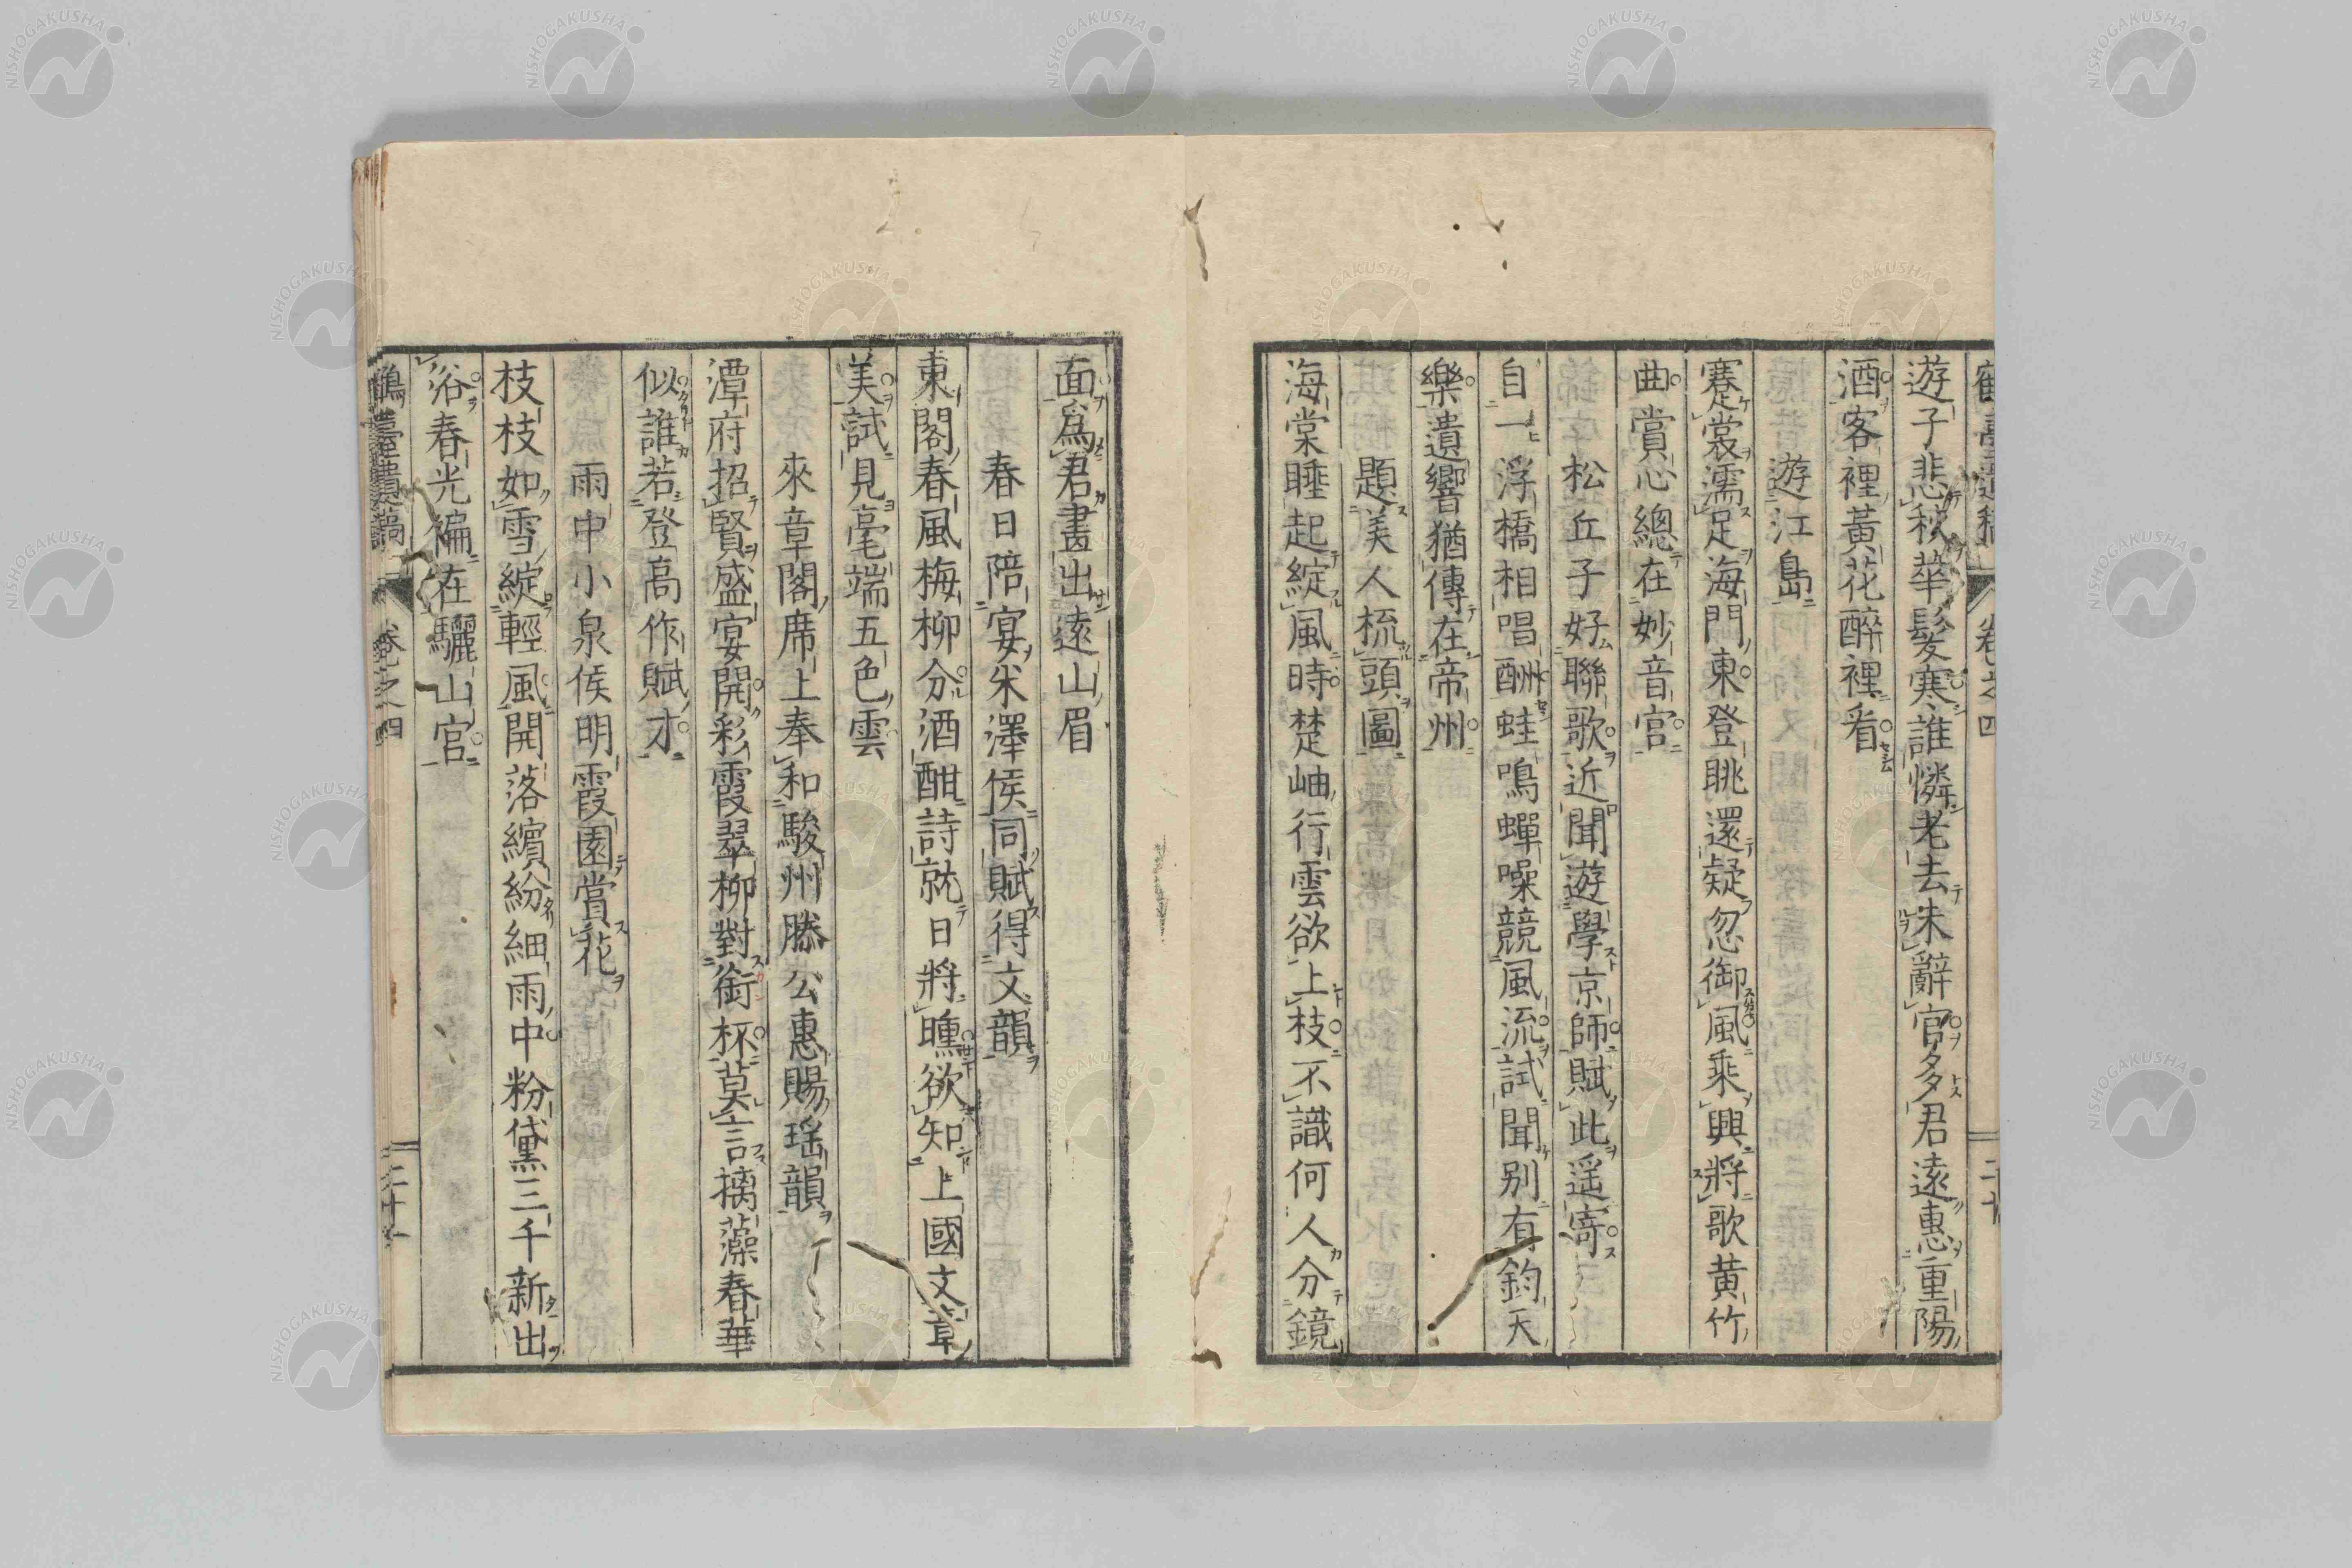 鶴臺遺稿 卷之四 二十
遊子悲秋華髮寒誰憐老去未辭官多君遠惠重陽
酒客裡黃花醉裡看
遊江島
蹇裳濡足海門東登眺還疑忽御風乘興將歌黄竹
曲賞心總在妙音宮
松丘子好聯歌近聞遊學京師賦此遥寄
自一浮橋相唱酬蛙鳴蟬噪競風流試聞別有鈞天
樂遺響猶傳在帝州
題美人梳頭圖
海棠睡起綻風時楚岫行雲欲上枝不識何人分鏡
面爲君畫出遠山眉
春日陪宴米澤侯同賦得文韻
東閣春風梅柳分酒酣詩就日將曛欲知上國文章
美試見毫端五色雲
來章閣席上奉和駿州滕公惠賜瑤韻
潭府招賢盛宴開彩霞翠柳對銜杯莫言摛藻春華
似誰若登高作賦才
雨中小泉侯明霞園賞花
枝枝如雪綻輕風開落繽紛細雨中粉黛三千新出
浴春光褊在驪山宮
鶴臺遺稿 卷之四 二十一
NISHOGAKUSHA